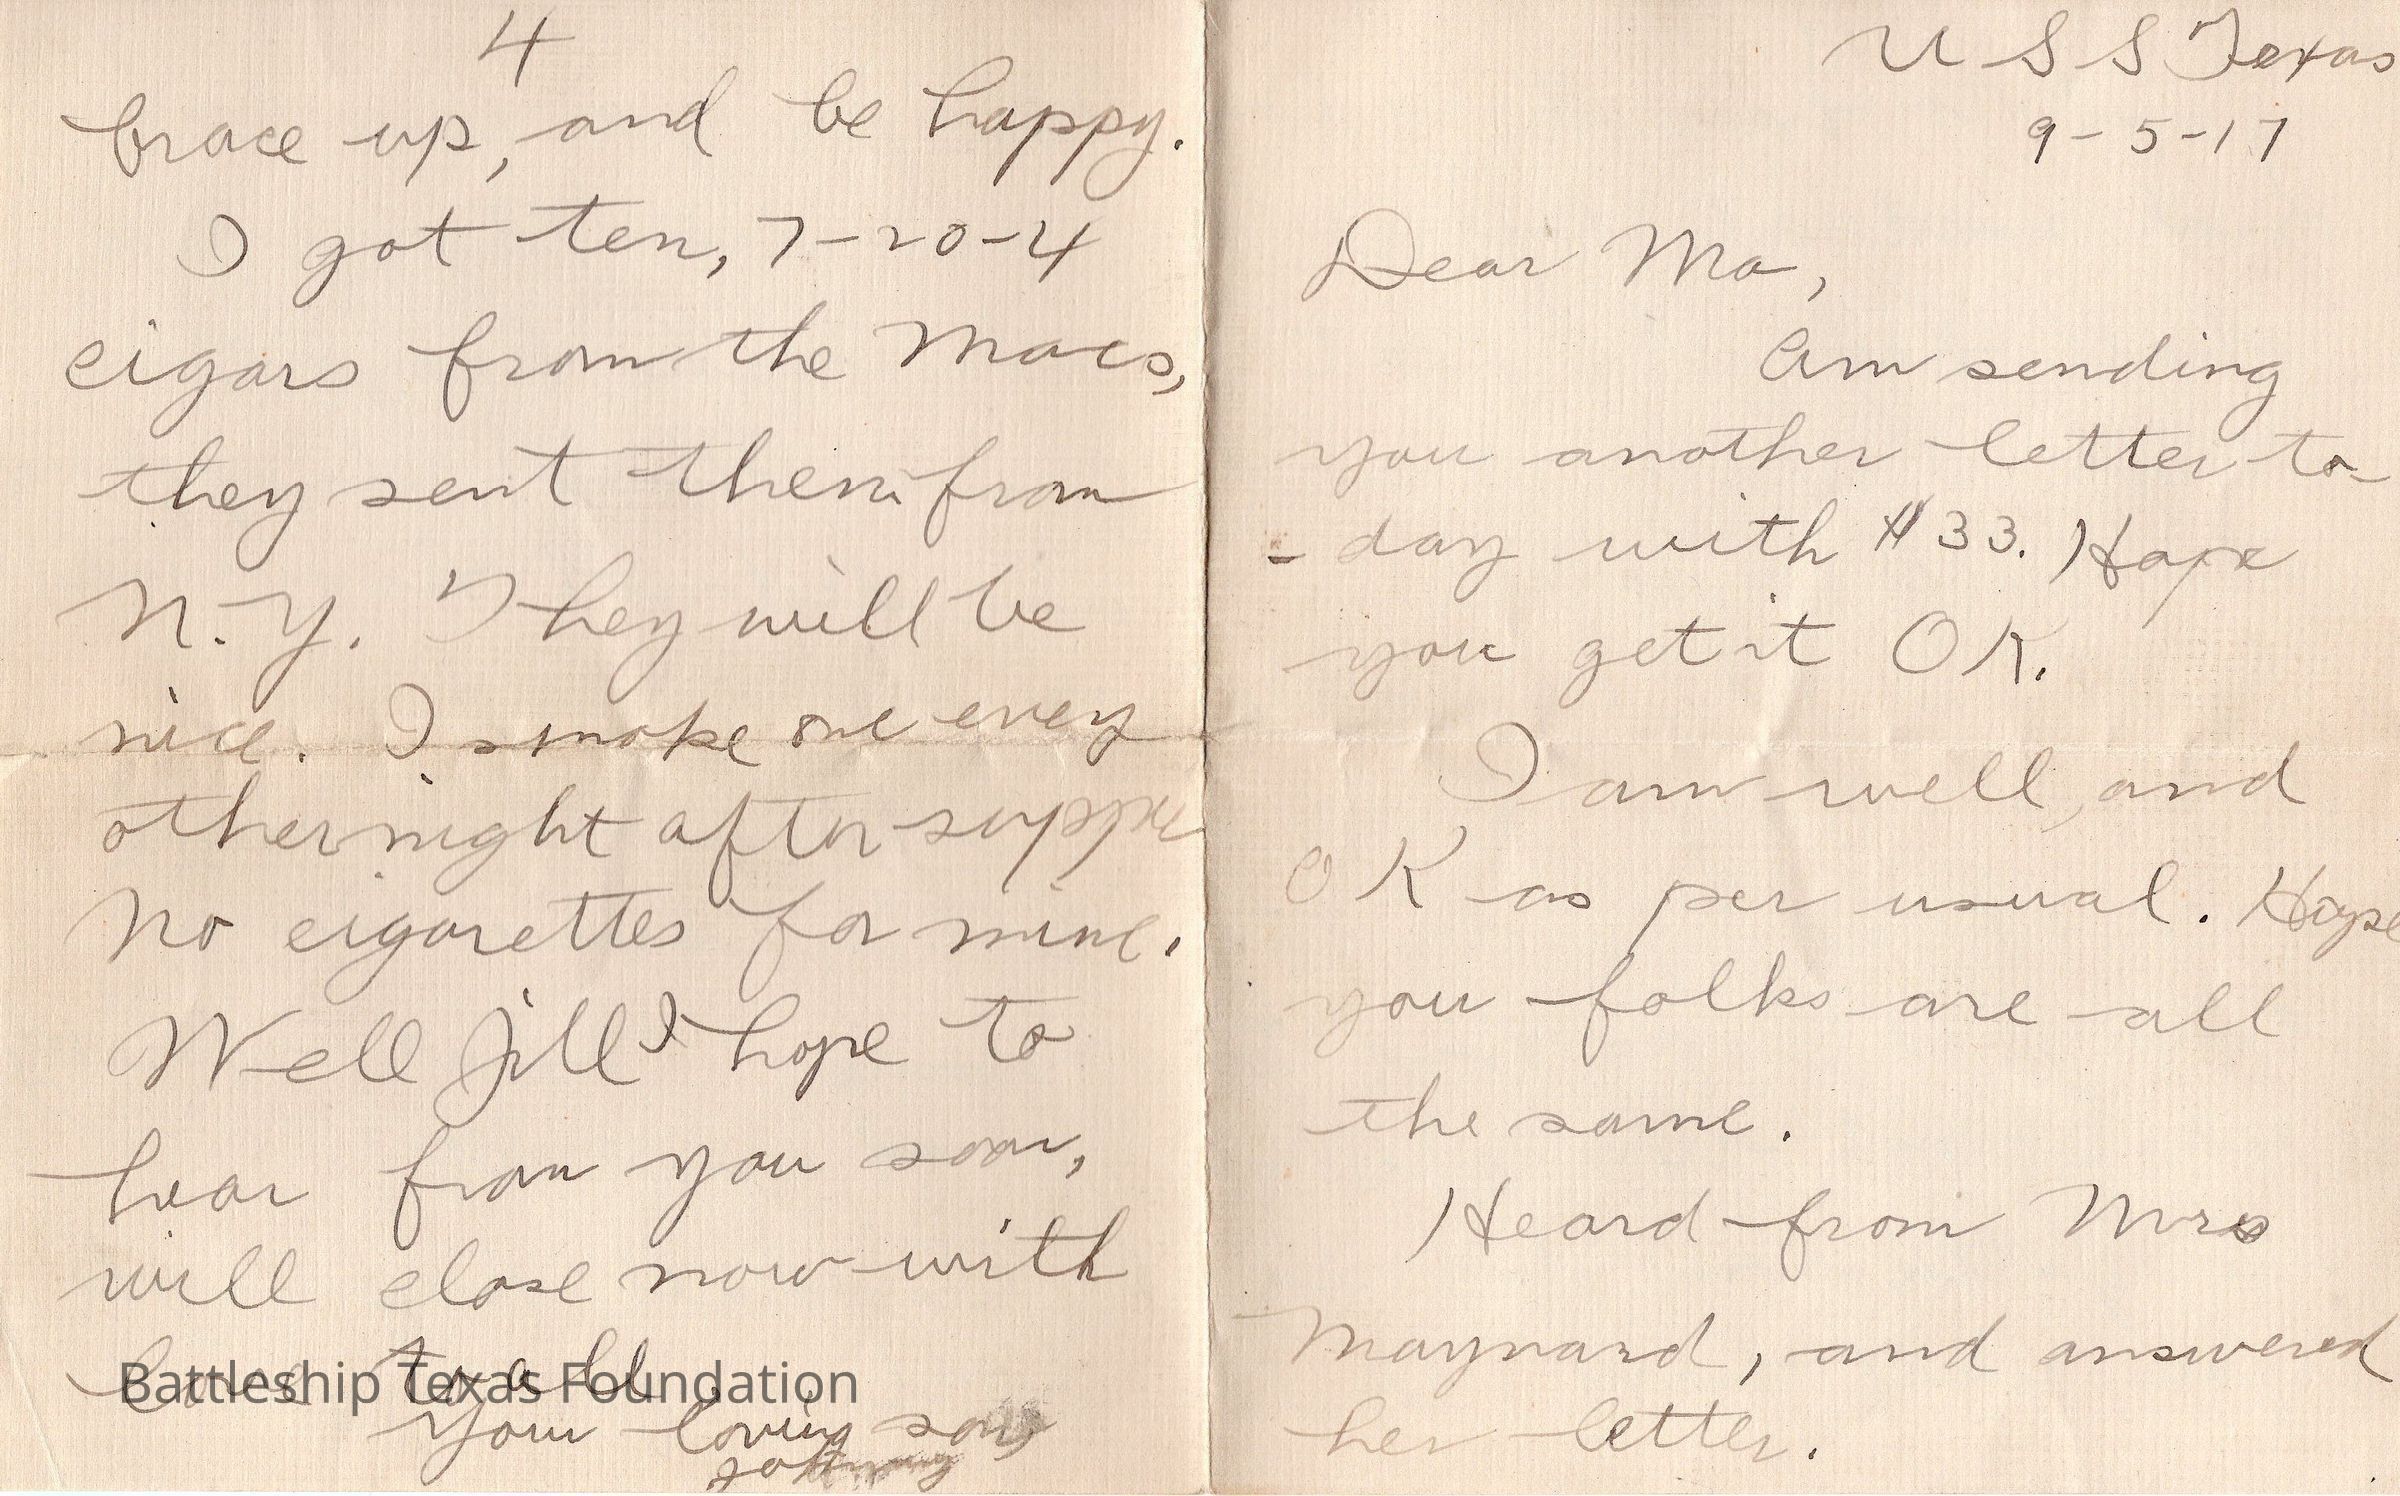 4
brace up, and be happy.
I got ten, 7-20-4
cigars from the Macs,
they sent them from
N.Y. They will be
nice. I smoke one every
other night after supper
No cigarettes for mine.
Well Jill I hope to
hear from you soon,
will close now with
love to all.
Your loving son
Battleship Texas Foundation
U S S Texas
9-5-17
Dear Ma,
Am sending
you another letter to-
-day with $33. Hope
you get it OK.
I am well, and
OK as per usual. Hope
you folks are all
the same.
Heard from Mrs
Maynard, and answered
her letter.